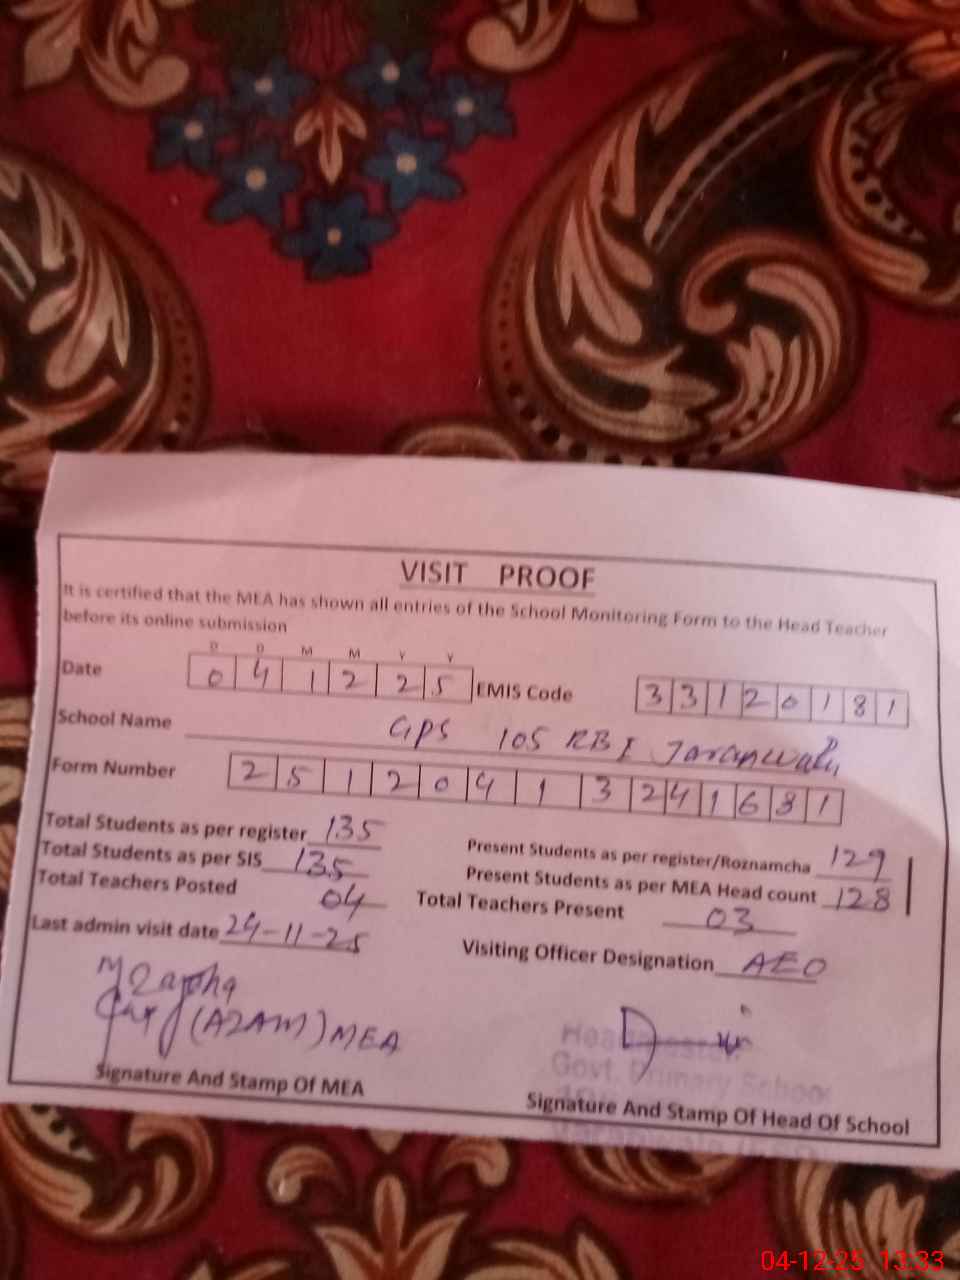 VISIT PROOF
It is certified that the MEA has shown all entries of the School Monitoring Form to the Head Teacher
before its online submission
D D M M Y Y
Date 0 4 1 2 2 5 EMIS Code 3 3 1 2 0 1 8 1
School Name GPS 105 RB I Jaranwala
Form Number 2 5 1 2 0 4 1 3 2 4 1 6 3 1
Total Students as per register 135
Present Students as per register/Roznamcha 129
Total Students as per SIS 135
Present Students as per MEA Head count 128
Total Teachers Posted 04
Total Teachers Present 03
Last admin visit date 24-11-25
Visiting Officer Designation AEO
(AZAM) MEA
Govt. Primary School
Signature And Stamp Of MEA
Signature And Stamp Of Head Of School
04-12-25 13:33